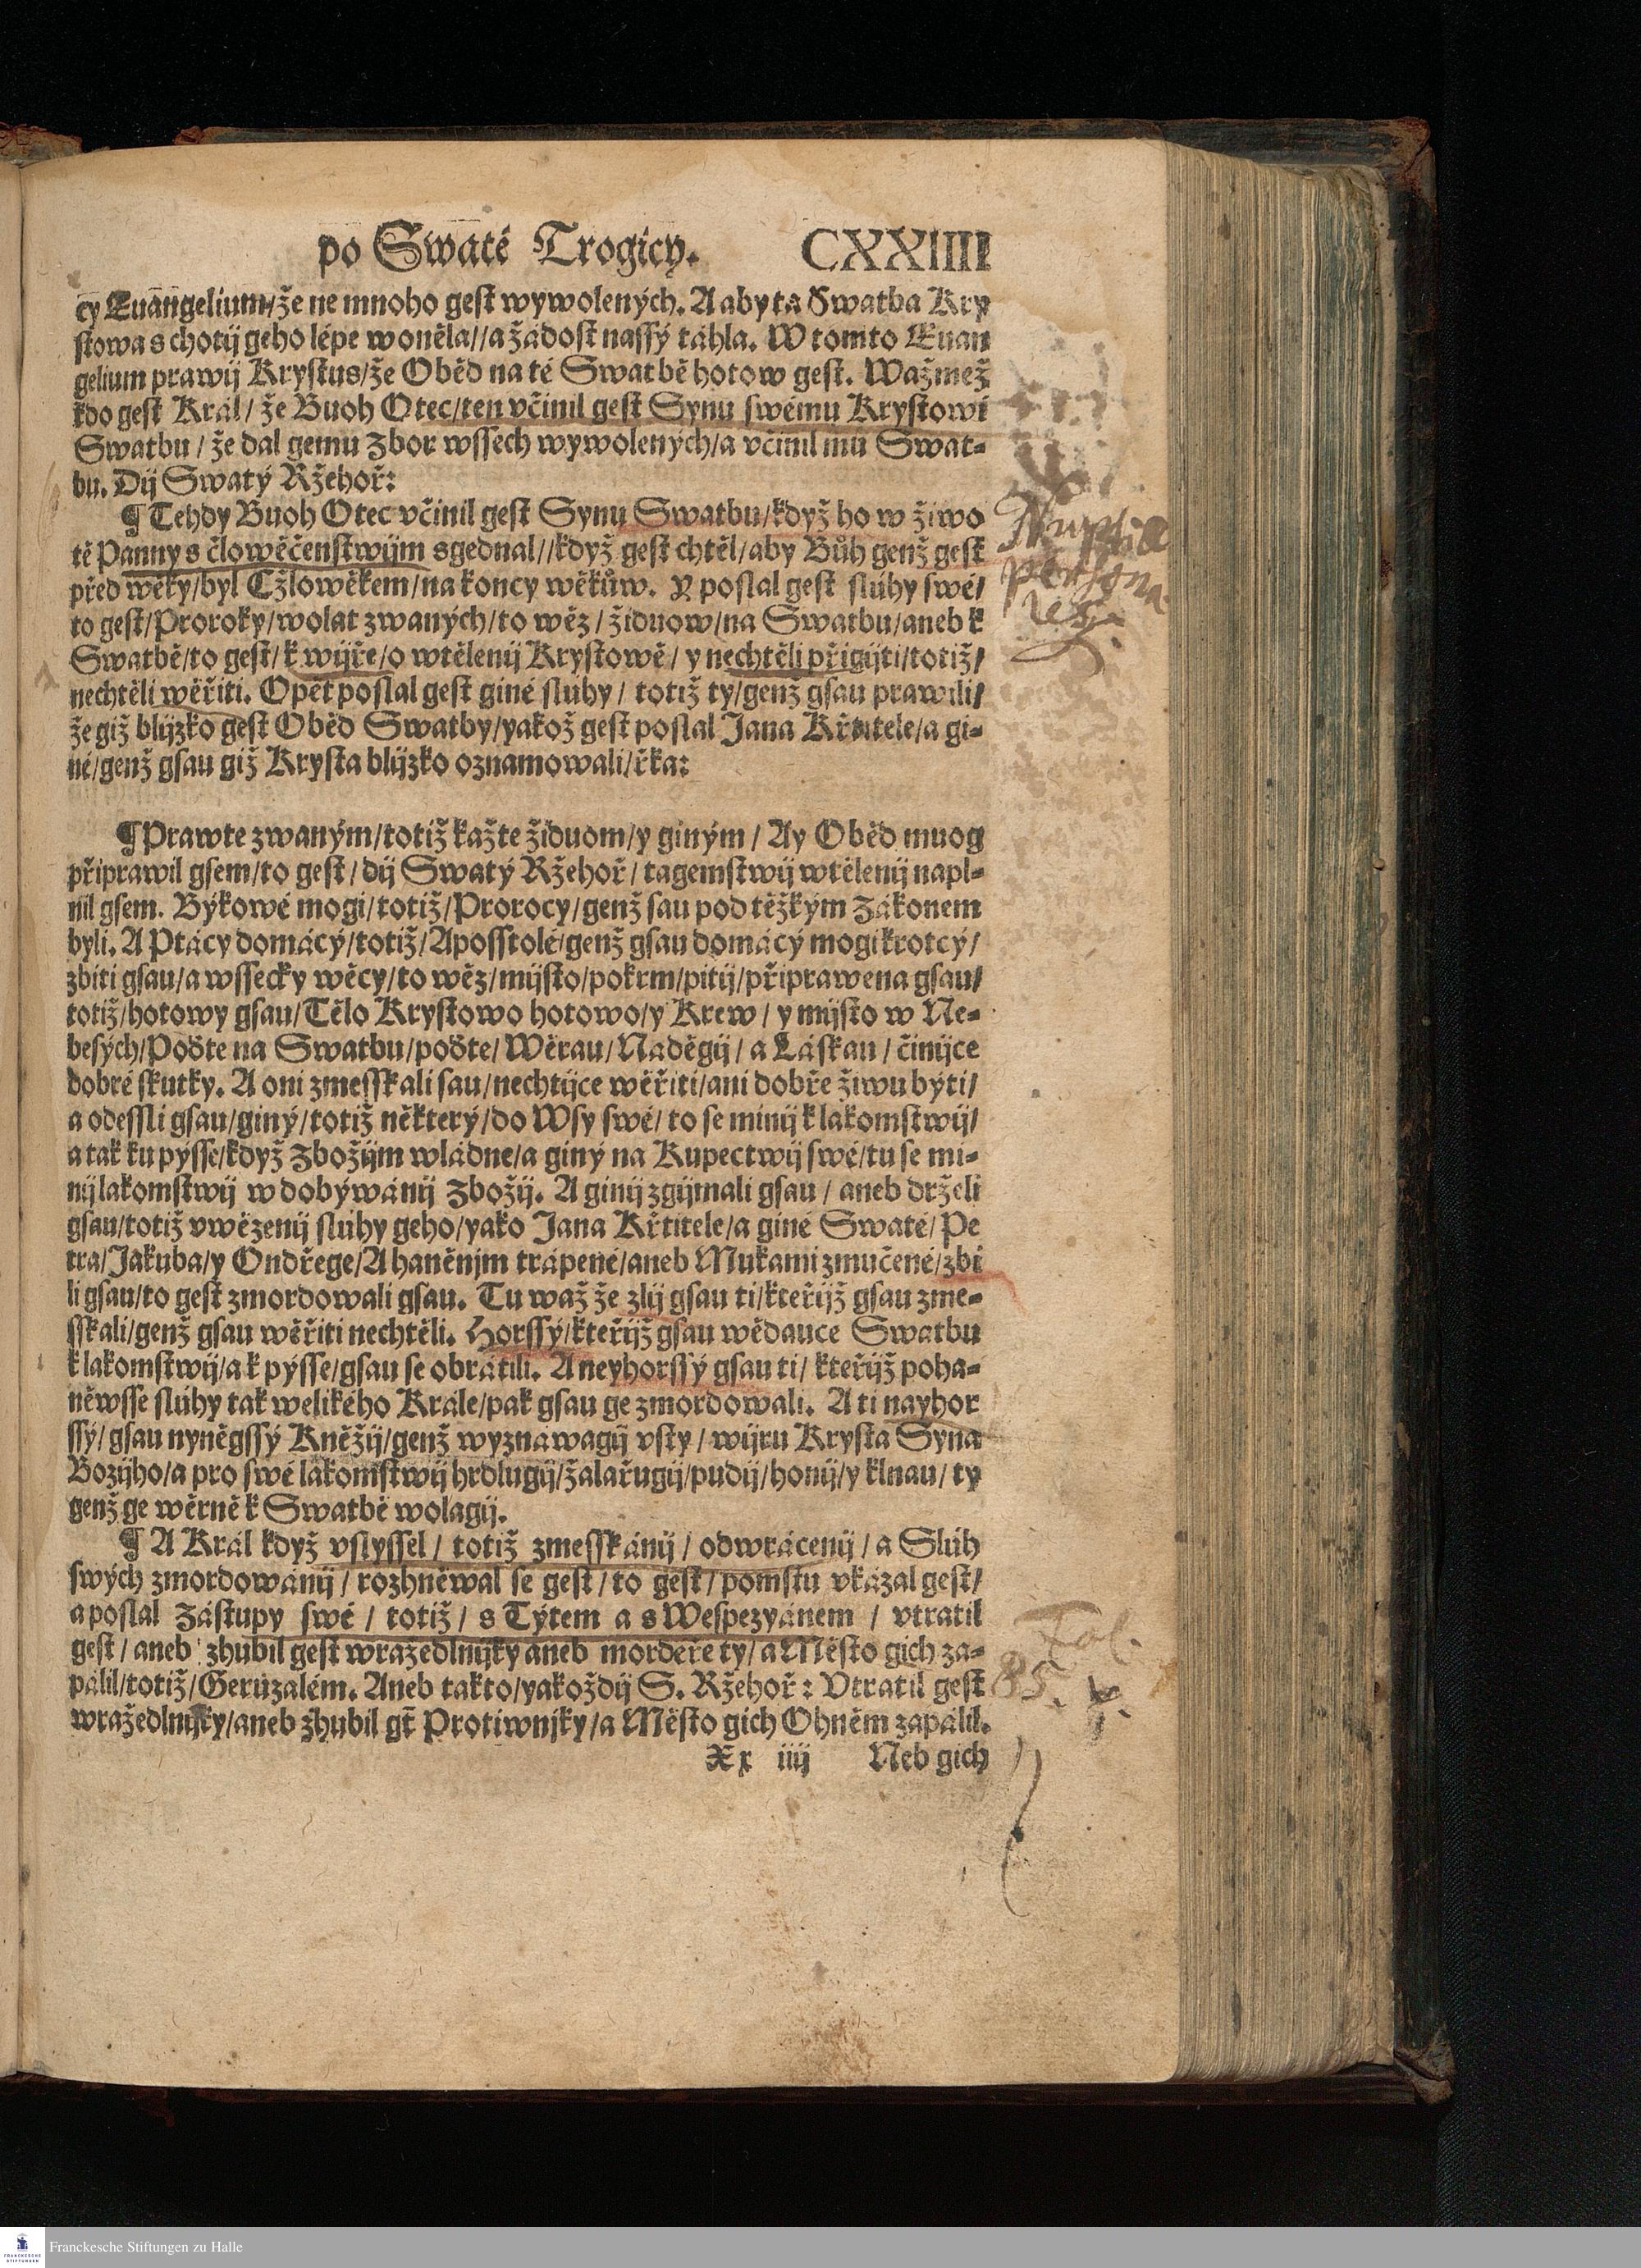 po Swaté Trogicy. CXXIIII
cy Euangelium/že ne mnoho gest wywolených. A aby ta Swatba Kry
stowa s chotij geho lépe woněla//a žádost nassý táhla. W tomto Euan
gelium prawij Krystus/že Oběd na té Swatbě hotow gest. Wažmež
kdo gest Král/ že Buoh Otec/ten včinil gest Synu swému Krystowi
Swatbu / že dal gemu Zbor wssech wywolených/a včinil mu Swat-
bu. Dij Swatý Ržehoř:
¶ Tehdy Buoh Otec včinil gest Synu Swatbu/když ho w žiwo
tě Panny s člowěčenstwijm sgednal//když gest chtěl/aby Bůh genž gest
před wěky/byl Cžlowěkem/na koncy wěkůw. Y poslal gest slúhy swé/
to gest/Proroky/wolat zwaných/to wěz/židuow/na Swatbu/aneb k
Swatbě/to gest/k wijře/o wtělenij Krystowě/ y nechtěli přigijti/totiž/
nechtěli wěřiti. Opět poslal gest giné sluhy/ totiž ty/genž gsau prawili/
že giž blijzko gest Oběd Swatby/yakož gest poslal Jana Křtitele/a gi-
né/genž gsau giž Krysta blijzko oznamowali/řka:
¶ Prawte zwaným/totiž kažte židuom/y giným/ Ay Oběd muog
připrawil gsem/to gest/ dij Swatý Ržehoř/ tagemstwij wtělenij napl-
nil gsem. Býkowé mogi/totiž/Prorocy/genž sau pod těžkým Zákonem
byli. A Ptácy domácý/totiž/Aposstolé/genž gsau domácý mogi krotcý/
zbiti gsau/a wssecky wěcy/to wěz/mijsto/pokrm/pitij/připrawena gsau/
totiž/hotowy gsau/Tělo Krystowo hotowo/y Krew/ y mijsto w Ne-
besých/Poďte na Swatbu/poďte/Wěrau/Naděgij/ a Láskau/ činijce
dobré skutky. A oni zmesskali sau/nechtijce wěřiti/ani dobře žiwu býti/
a odessli gsau/giný/totiž některý/do Wsy swé/ to se mínij k lakomstwij/
a tak ku pýsse/když Zbožijm wládne/a giný na Kupectwij swé/tu se mi-
nij lakomstwij w dobýwánij Zbožij. A ginij zgijmali gsau/ aneb drželi
gsau/totiž vwězenij slúhy geho/yako Jana Křtitele/a giné Swaté/ Pe
tra/Jakuba/y Ondřege/A haněnjm trápené/aneb Mukami zmučené/zbi
li gsau/to gest zmordowali gsau. Tu waž že zlij gsau ti/kteřijž gsau zme-
sskali/genž gsau wěřiti nechtěli. Horssý/kteřijž gsau wědauce Swatbu
k lakomstwij/a k pýsse/gsau se obrátili. A neyhorssý gsau ti/ kteřijž poha-
něwsse slúhy tak welikého Krále/pak gsau ge zmordowali. A ti nayhor
ssý/ gsau nyněgssý Kněžij/genž wyznáwagij vsty/ wijru Krysta Syna
Božijho/a pro swé lakomstwij hrdlugij/žalařugij/pudij/honij/y klnau/ ty
genž ge wěrně k Swatbě wolagij.
¶ A Král když vslyssel / totiž zmesskánij / odwrácenij / a Slúh
swých zmordowánij / rozhněwal se gest / to gest / pomstu vkázal gest/
a poslal Zástupy swé / totiž / s Týtem a s Wespezyánem / vtratil
gest / aneb zhubil gest wražedlnijky aneb mordeře ty/ a Město gich za-
pálil/totiž/Geruzalém. Aneb takto/yakož dij S. Ržehoř: Vtratil gest
wražedlnijky/aneb zhubil gt̃ Protiwnjky/a Město gich Ohněm zapálil.
Xx iiij Neb gich
Nuptiae
persona
les.
Fol.
85.
Franckesche Stiftungen zu Halle